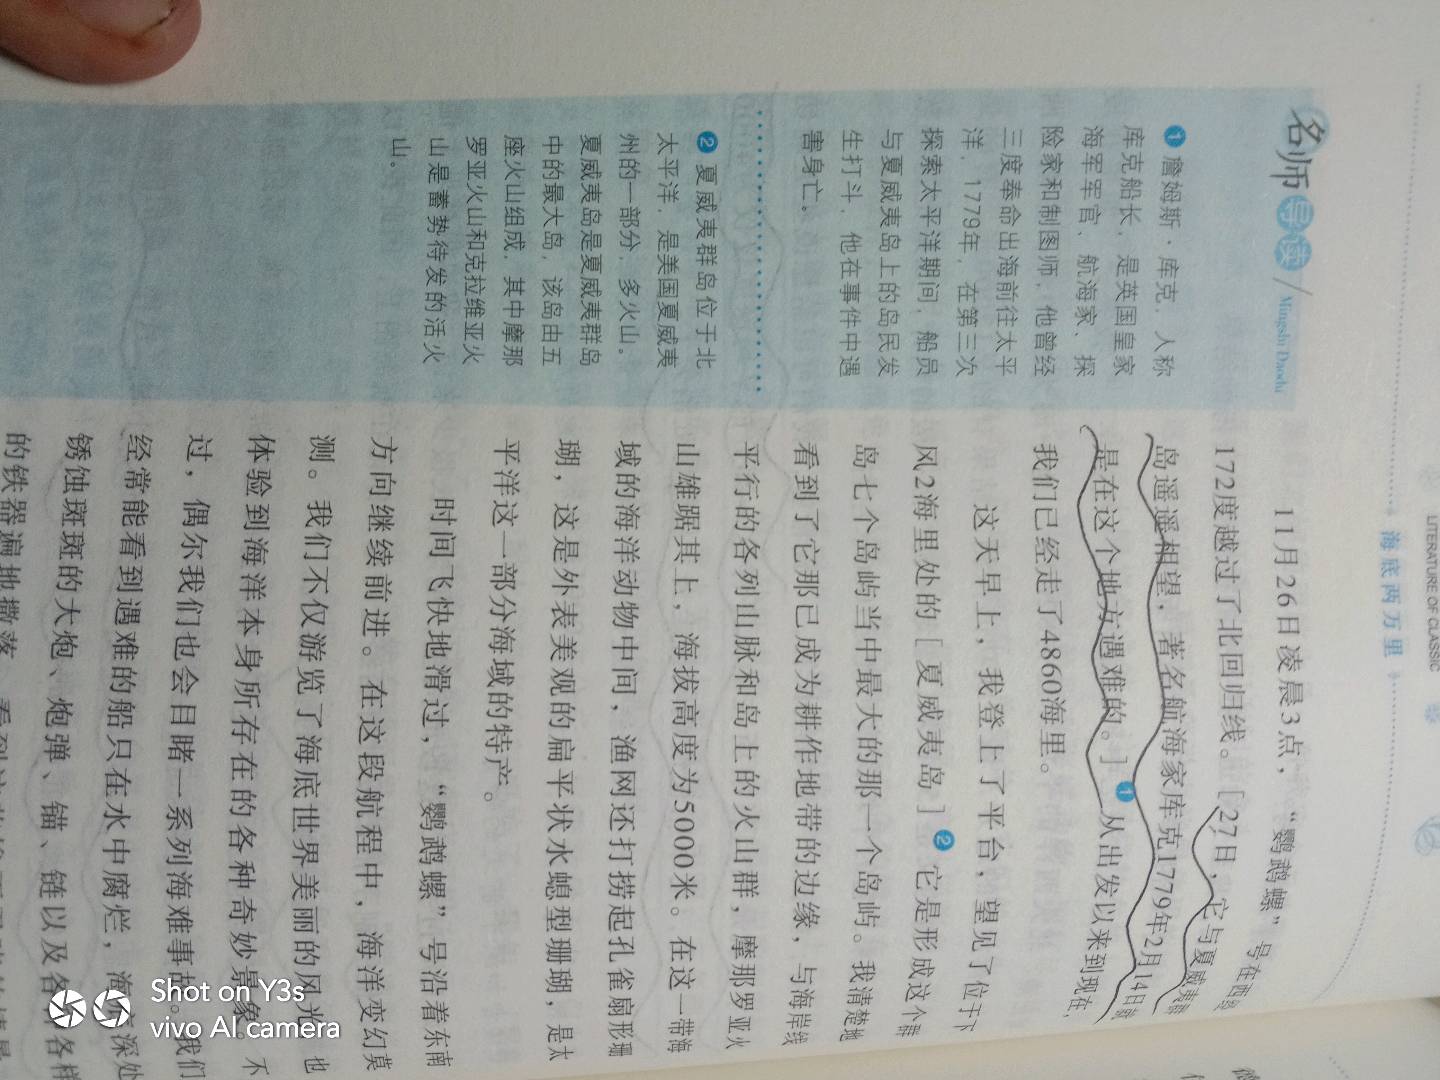 LITERATURE OF CLASSIC
海底两万里
名师导读
Mingshi Daodu
❶ 詹姆斯·库克，人称
库克船长，是英国皇家
海军军官、航海家、探
险家和制图师，他曾经
三度奉命出海前往太平
洋，1779年，在第三次
探索太平洋期间，船员
与夏威夷岛上的岛民发
生打斗，他在事件中遇
害身亡。
❷ 夏威夷群岛位于北
太平洋，是美国夏威夷
州的一部分，多火山。
夏威夷岛是夏威夷群岛
中的最大岛，该岛由五
座火山组成，其中摩那
罗亚火山和克拉维亚火
山是蓄势待发的活火
山。
11月26日凌晨3点，“鹦鹉螺”号在西经
172度越过了北回归线。[27日，它与夏威夷群
岛遥遥相望，著名航海家库克1779年2月14日就
是在这个地方遇难的。]❶从出发以来到现在，
我们已经走了4860海里。
这天早上，我登上了平台，望见了位于下
风2海里处的[夏威夷岛]❷它是形成这个群
岛七个岛屿当中最大的那一个岛屿。我清楚地
看到了它那已成为耕作地带的边缘，与海岸线
平行的各列山脉和岛上的火山群，摩那罗亚火
山雄踞其上，海拔高度为5000米。在这一带海
域的海洋动物中间，渔网还打捞起孔雀扇形珊
瑚，这是外表美观的扁平状水螅型珊瑚，是太
平洋这一部分海域的特产。
时间飞快地滑过，“鹦鹉螺”号沿着东南
方向继续前进。在这段航程中，海洋变幻莫
测。我们不仅游览了海底世界美丽的风光，也
体验到海洋本身所存在的各种奇妙景象。不
过，偶尔我们也会目睹一系列海难事故。我们
经常能看到遇难的船只在水中腐烂，海底深处
锈蚀斑斑的大炮、炮弹、锚、链以及各种各样
的铁器遍地撒落
Shot on Y3s
vivo AI camera